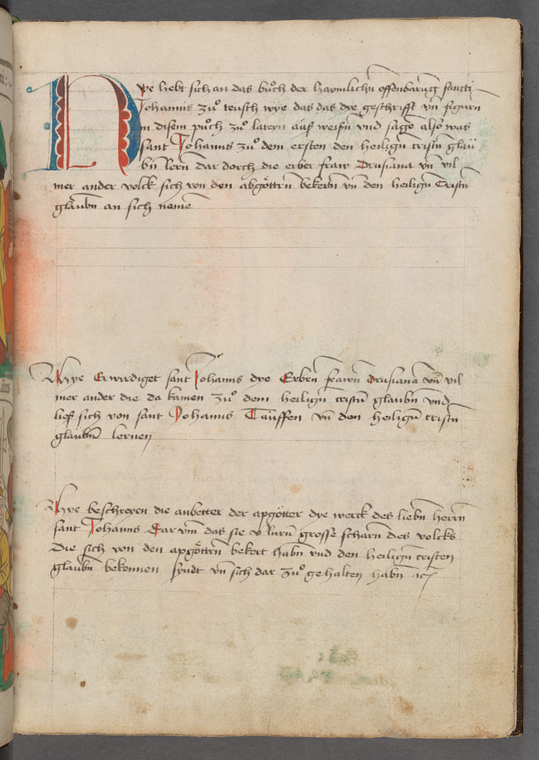 Hye hebt sich an das buͦch der haymlichn̄ offenbarūg sancti
Johannis zuͦ teusch wye das das dye geschrifft vn̄ figurn
in disem puͦch zuͦ latein auß weisn̄ vnd sage also was
sant Johanns zuͦ dem ersten den heilign̄ cristn̄ glau
bn̄ lern̄ dar dorch die erber fraw Drusiana vn̄ vil
mer ander volck sich von den abgöttrn̄ bekern̄ vn̄ den heilign̄ Cristn̄
glaubn̄ an sich neme
Hye Erwirdiget sant Johanns dye Erbrn̄ frawn̄ Drusiana vn̄ vil
mer ander die da kamen zuͦ dem heilign̄ cristn̄ glaubn̄ vnd
ließ sich von sant Johanns Tauffen vn̄ den heilign̄ cristn̄
glaubn̄ lernen
Hye beschreyen die anbetter der apgötter dye werck des liebn̄ herrn̄
sant Johanns Darvm̄ das sie v̄lurn̄ grosse scharn̄ des volcks
Die sich von den apgöttrn̄ bekert habn̄ vnd den heilign̄ cristen
glaubn̄ bekennen syndt vn̄ sich dar zuͦ gehalten habn̄ ⁊c